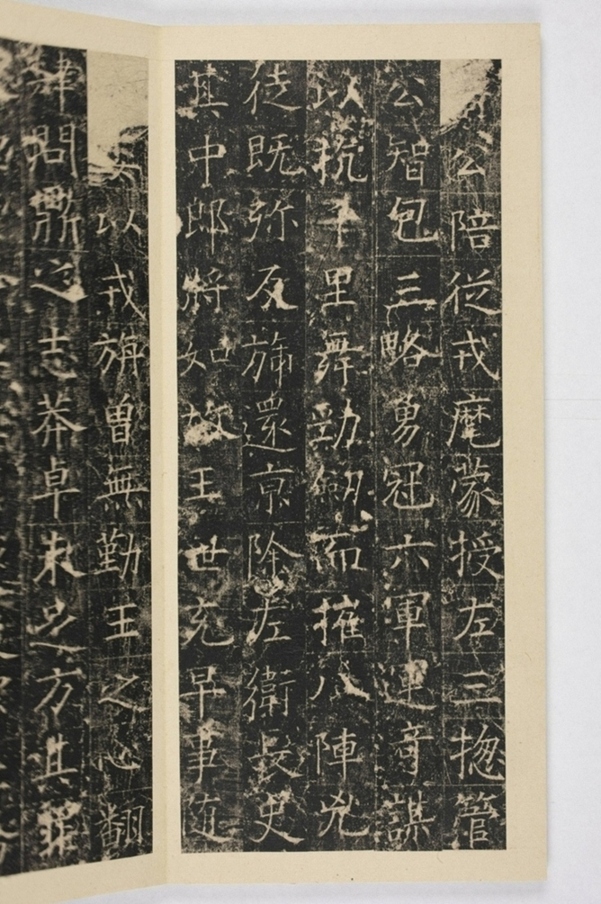 公陪從戎麾蒙授左三揔管
公智包三略勇冠六軍運奇謀
以抗千里舞勁劒而摧八陣兇
徒既弥反旆還京除左衛長史
其中郎將如故王世充早事随
以戎旃曾無勤王之心翻
肆問鼎之志莽卓未之方其罪